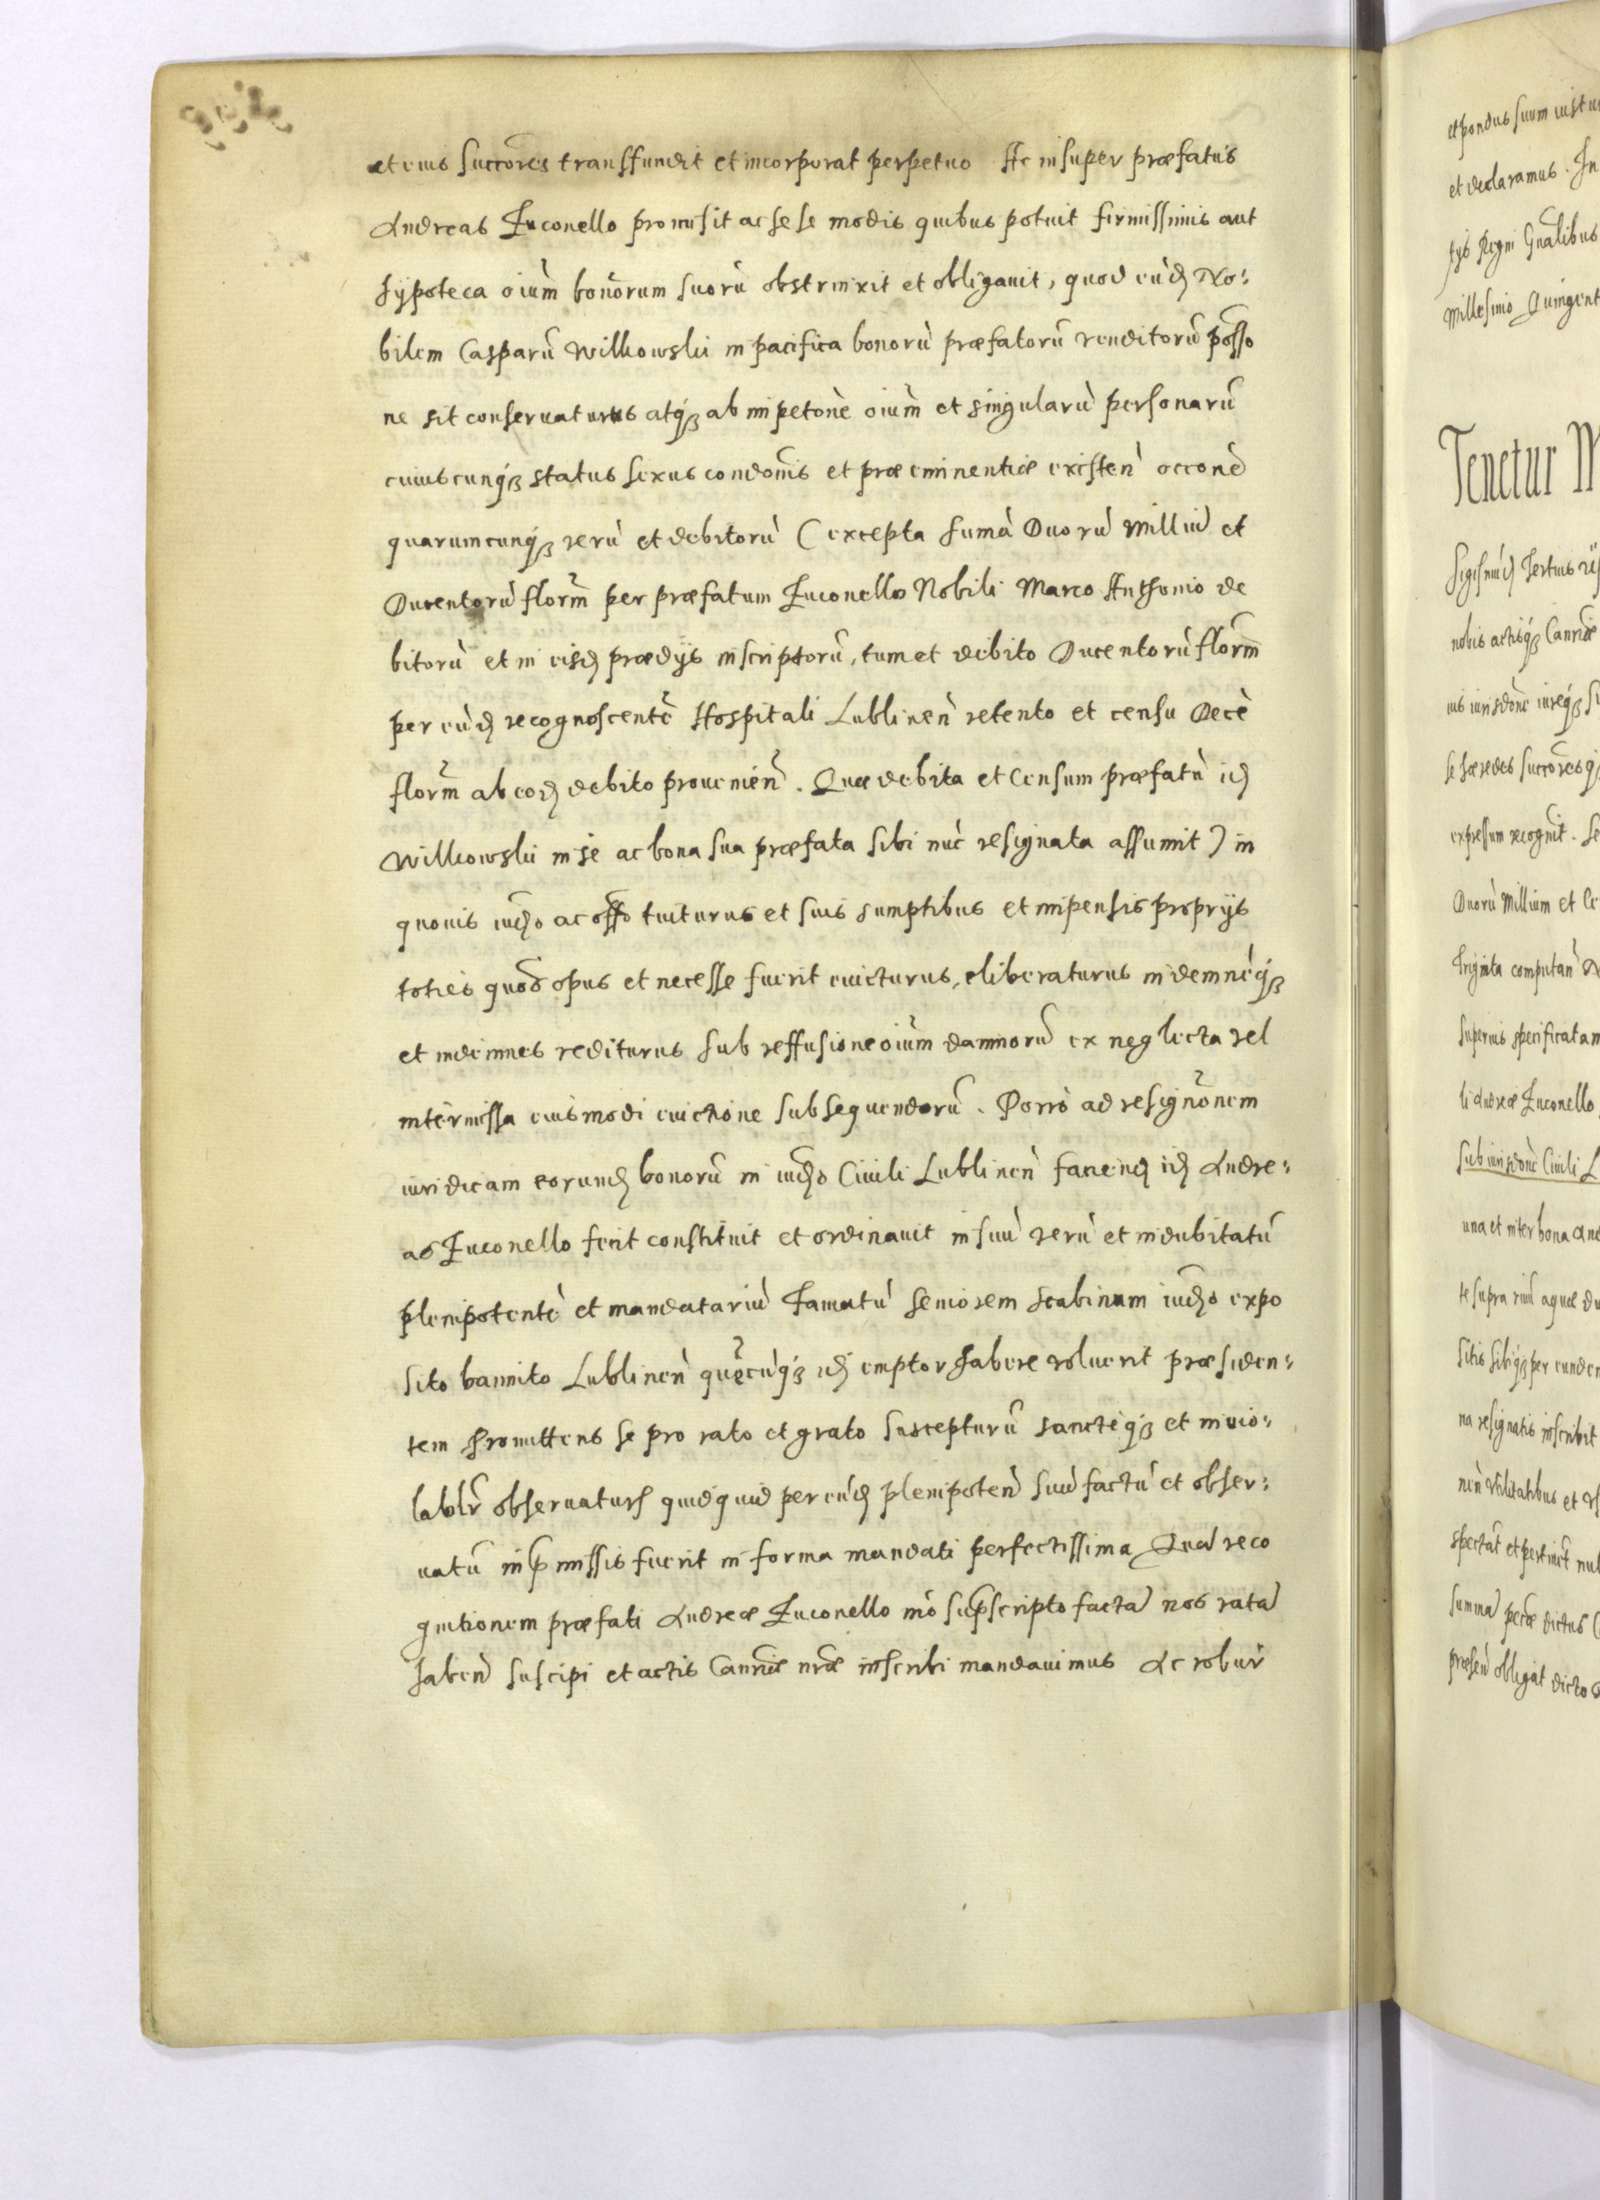 et eius succores transfundit et incorporat perpetuo Ac insuper præfatus
Andreas Zuconello promisit ac sese modis quibus potuit firmissimis aut
hypoteca oiũm bonorum suorũ obstrinxit et obligauit, quod eũd No:
bilem Casparũ Wilkowski in pacifica bonorũ præfatorũ venditorũ posso
ne sit conseruaturus atq ab impetone oiũm et singularũ personarũ
cuiuscunq status sexus condonis et præeminentiæ existen occone
quarumcunq rerũ et debitorũ (excepta sumã Duorũ Milliũ et
Ducentorũ florm per præfatum Zuconello Nobili Marco Anthonio de
bitorũ et in eisd prædijs inscriptorũ, tum et debito Ducentorũ florm
per eũd recognoscentẽ Hospitali Lublinen retento et censu Decẽ
florm ab eod debito prouenien. Quæ debita et Censum præfatũ id
Wilkowski in se ac bona sua præfata sibi nuc resignata assumit) in
quouis iud͠o ac off͠o tuiturus et suis sumptibus et impensis proprijs
toties quod opus et necesse fuerit euicturus, eliberaturus indemnẽq
et indemnes rediturus sub reffusione oiũm damnorũ ex neglecta vel
intermissa eiusmodi euictione subsequendorũ. Porro ad resignõnem
iuridicam eorund bonorũ in iud͠o Ciuili Lublinen faciend id Andre:
as Zuconello fecit constituit et ordinauit in suũ verũ et indubitatũ
plenipotentẽ et mandatariũ Famatũ seniorem scabinum iud͠o expo
sito bannito Lublinen quẽcũq id emptor habere voluerit præsiden:
tem Promittens se pro rato et grato suscepturũ sancteq et inuio:
lablr obseruatur quidquid per eũd plenipoten suũ factũ et obser:
uatũ in p̃missis fuerit in forma mandati perfectissima Quã reco
gnitionem præfati Andreæ Zuconello mõ sup̃scripto factã nos ratã
haben suscipi et actis Canriæ nr̃æ inscribi mandauimus Ac robur
et pondus suum iustu
et declaramus. In
tijs Regni Gnalibus
Millesimo Quingent
Tenetur M
Sigismũd Tertius
nobis actisq Canriæ
ius iurisdone iureq
se hæredes succores q
expressum recognit. Se
Duorũ Millium et
Triginta computan
superius specificatam
li Andreæ Zuconello
sub iurisdone Ciuili L
una et inter bona And
te supra riuũ aquæ du
sitis sibiq per eundem
na resignatis inscribit
nen vtilitatibus et
spectat et pertinet nul
summa pecũæ dictus
præsen obligat dicto